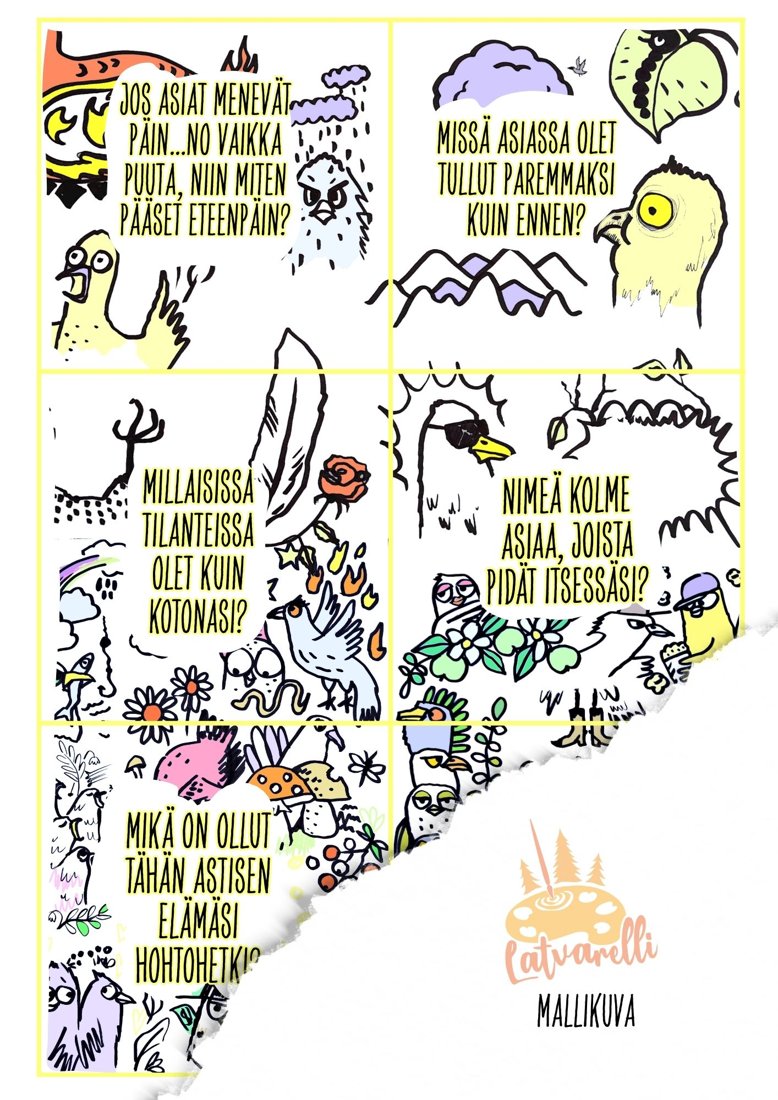 JOS ASIAT MENEVÄT
PÄIN...NO VAIKKA
PUUTA, NIIN MITEN
PÄÄSET ETEENPÄIN?
MISSÄ ASIASSA OLET
TULLUT PAREMMAKSI
KUIN ENNEN?
MILLAISISSA
TILANTEISSA
OLET KUIN
KOTONASI?
NIMEÄ KOLME
ASIAA, JOISTA
PIDÄT ITSESSÄSI?
MIKÄ ON OLLUT
TÄHÄN ASTISEN
ELÄMÄSI
Latvarelli
MALLIKUVA